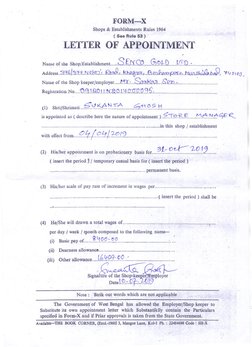 FORM—X
Shops & Establishments Rules 1964
( See Rule 53 )
LETTER OF APPOINTMENT
Name of the Shop/Establishment SENCO GOLD LTD.
Address Road, Khagra, Berhampore, Murshidabad,
Name of the Shop keeper/employer Mr. Sen.
Registration No.
(1) Shri/Shrimati SUKANTA GHOSH
is appointed as ( describe here the nature of appointment ) STORE MANAGER
in this shop / establishment
with effect from 04/04/2019
(2) His/her appointment is on probationary basis for 31-oct 2019
( insert the period ) temporary casual basis for ( insert the period )
permanent basis.
(3) His/her scale of pay rate of increment is wages per
( insert the period ) shall be
(4) He/She will drawn a total wages of
per day / week / month compound to the following namely :
(i) Basic pay of 8400.00
(ii) Dearness allowance
(iii) Other allowance 16400.00
Signature of the Shop-keeper/Employer
Date
Note : Strik out words which are not applicable
The Government of West Bengal has allowed the Employer/Shop keeper to
Substitute its own appointment letter which Substantially contain the Particulars
specified in Form-X and if Prior approvals is taken from the State Government.
Available—THE BOOK CORNER, 5, Mangoe Lane, Kol-1 Ph. : 22484668 Code : SE-X